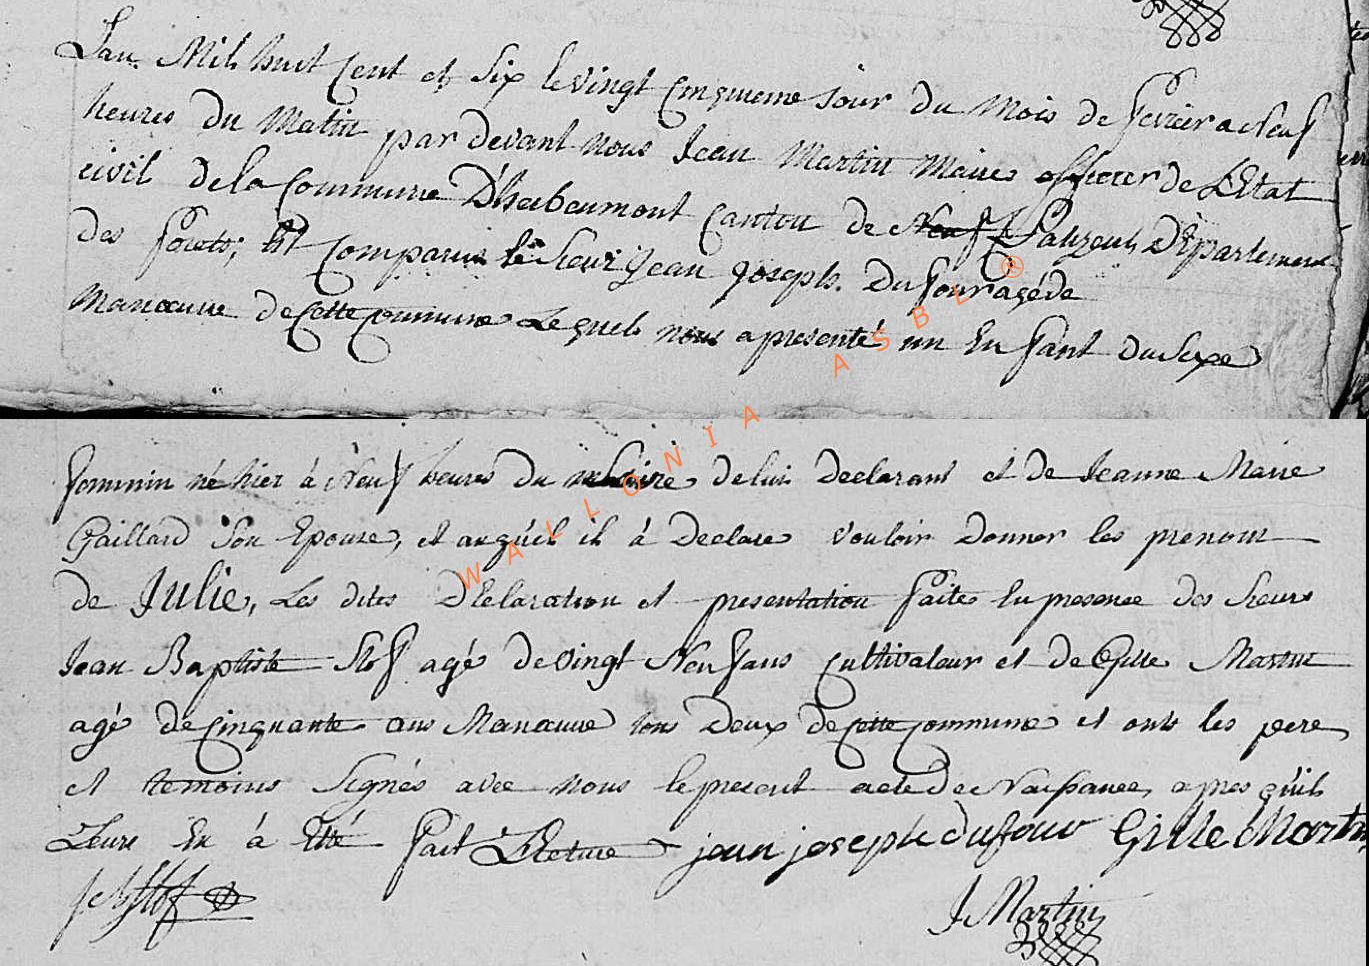 L'an Mil huit Cent et Six le vingt Cinquieme Jour du Mois de fevrier a Neuf
heures du Matin par devant nous Jean Martin Maire officier de L'Etat
civil de la Commune D'herbeumont Canton de Neuf Palizeul, Département
des forets, Est Comparu le sieur Jean Joseph Dufour agé de
Manœuvre de Cette Commune Lequel nous a presenté un Enfant du Sexe
feminin né hier à Neuf heures du soire de lui Declarant et de Jeanne Marie
Gaillard Son Epouse, et auquel il à Declare Vouloir Donner les prenom
de Julie, Les dites Declaration et presentation faite En presence des sieurs
Jean Baptiste Slof agé de vingt Neuf ans Cultivateur et de Gille Martin
agé de Cinquante ans Manœuvre tous Deux de Cette Commune et onts les pere
et temoins Signés avec nous le present acte de Naissance, apres qu'il
Leure En à Eté fait Lecture jean joseph dufour Gille Martin
J B Slof
J Martin
WALLONIA ASBL ®